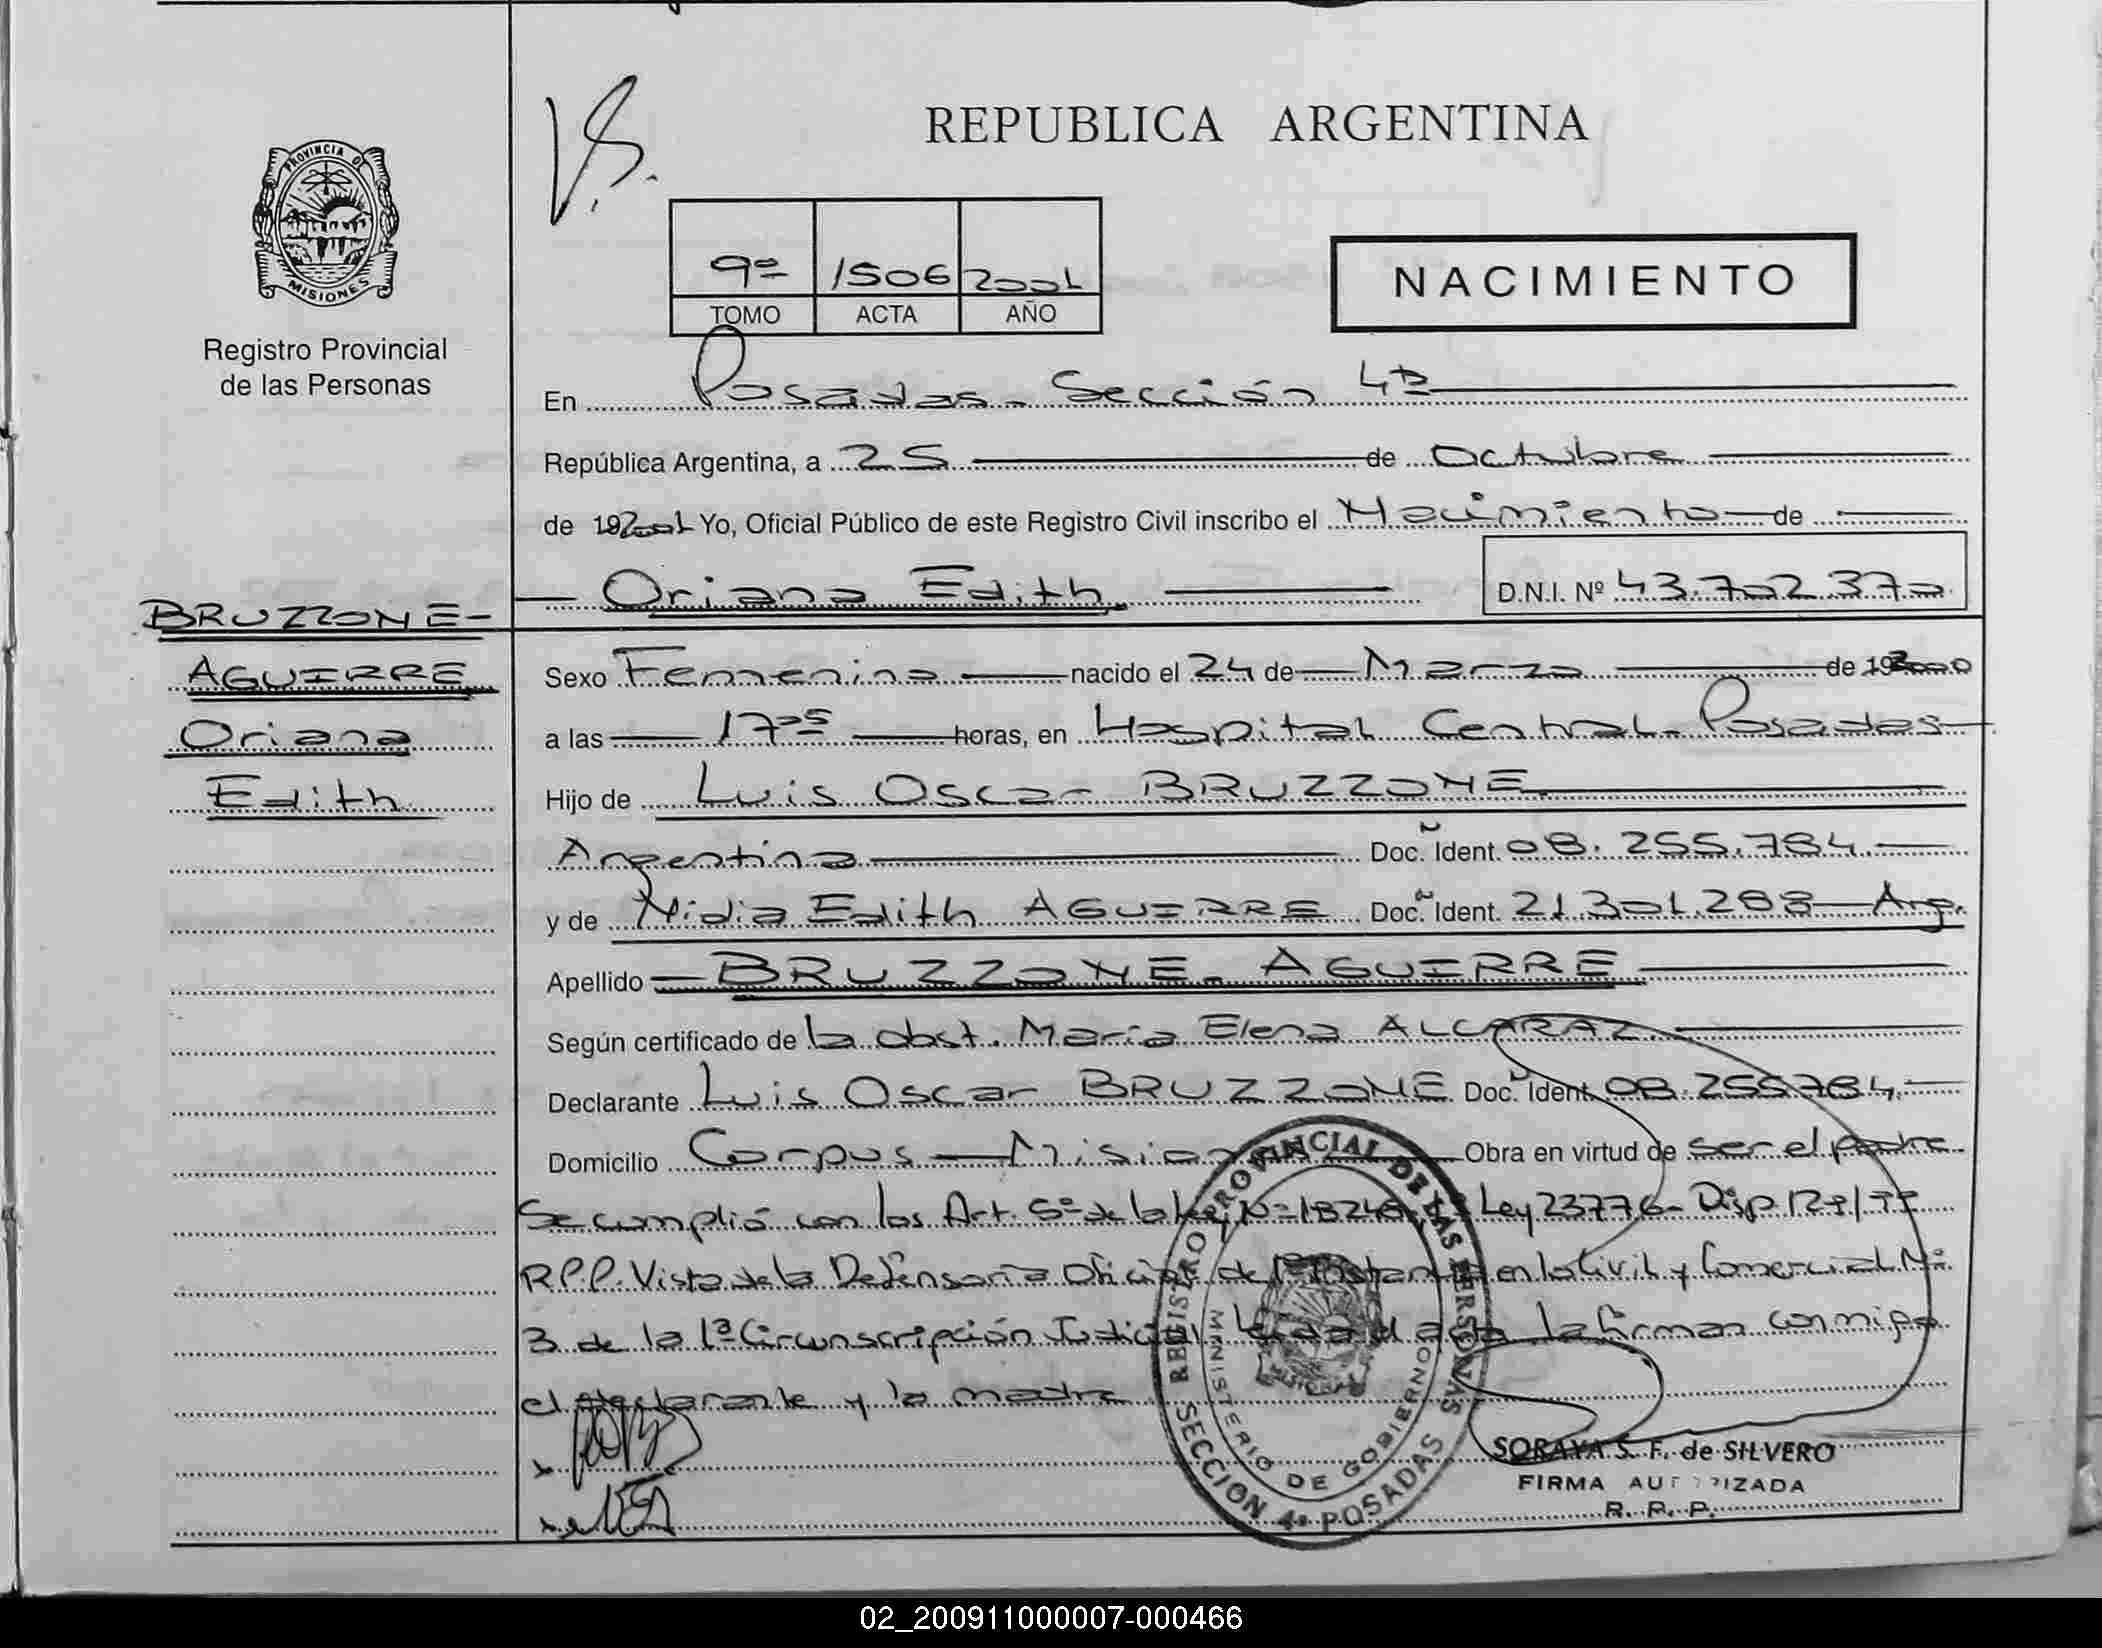 REPUBLICA ARGENTINA
PROVINCIA DE
MISIONES
Registro Provincial
de las Personas
9º 1506 2001
TOMO ACTA AÑO
NACIMIENTO
En Posadas - Sección 4ª
República Argentina, a 25 de Octubre
de 192001 Yo, Oficial Público de este Registro Civil inscribo el Nacimiento de
Oriana Edith D.N.I. Nº 43.702.370
BRUZZONE-
AGUIRRE
Oriana
Edith
Sexo Femenino nacido el 24 de Marzo de 2000
a las 17 05 horas, en Hospital Central - Posadas
Hijo de Luis Oscar BRUZZONE
Argentina Doc. Ident. 08.255.784
y de Nidia Edith AGUIRRE Doc. Ident. 21.301.288 - Arg.
Apellido BRUZZONE - AGUIRRE
Según certificado de la obst. María Elena ALCARAZ
Declarante Luis Oscar BRUZZONE Doc. Ident. 08.255784
Domicilio Corpus - Misiones Obra en virtud de ser el padre
Se cumplió con los Art. 5º de la Ley Nº 18248 Ley 23776 - Disp 129/
R.P.P. Vista de la Defensoría Oficial de 1ª Instancia en lo Civil y Comercial Nº
3 de la 1ª Circunscripción Judicial, Leída el acta la firman conmigo
el declarante y la madre
REGISTRO PROVINCIAL DE LAS PERSONAS
MINISTERIO DE GOBIERNO
SECCION 4ª POSADAS
SORAYA S. F. de SILVERO
FIRMA AUTORIZADA
R. P. P.
02_200911000007-000466